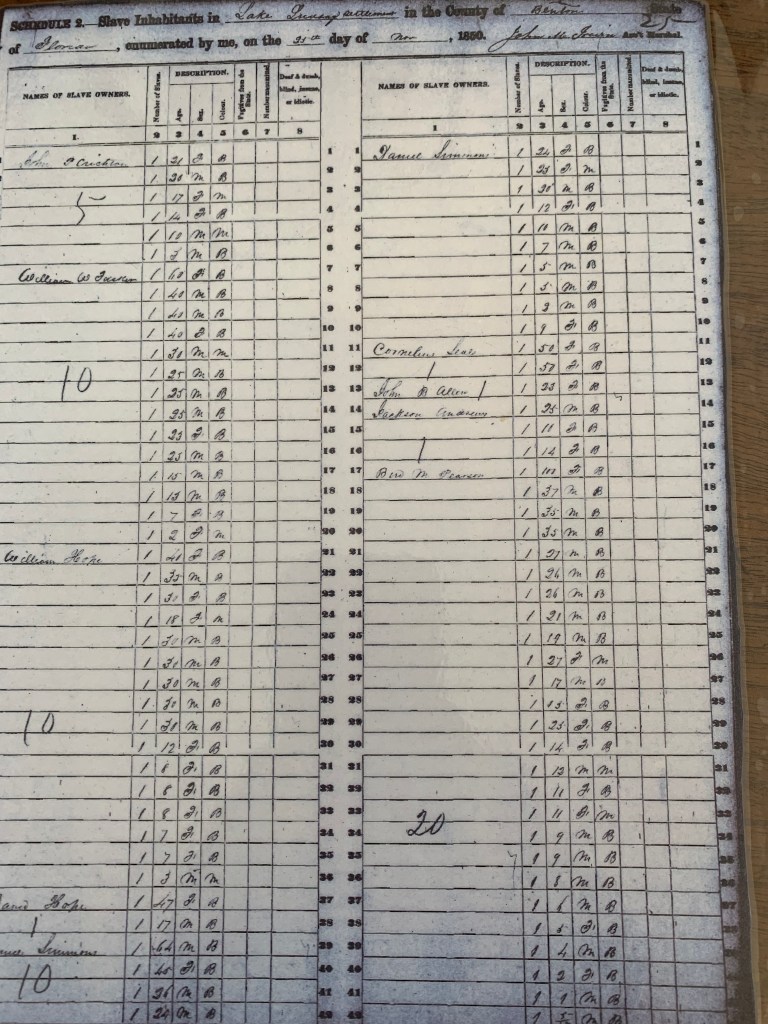 SCHEDULE 2. Slave Inhabitants in Lake settlement in the County of Benton State
of , enumerated by me, on the day of Nov, 1850. Ass't Marshal.
25
NAMES OF SLAVE OWNERS. Number of Slaves. DESCRIPTION. Age. Sex. Colour. Fugitives from the State. Number manumitted. Deaf & dumb, blind, insane, or idiotic.
1. 2 3 4 5 6 7 8
John 1 21 F B 1
1 20 m B 2
5 1 17 F m 3
1 14 F B 4
1 10 m m 5
1 m B 6
William W 1 60 F B 7
1 40 m B 8
1 40 m B 9
1 40 F B 10
1 30 m m 11
10 1 25 m B 12
1 25 m B 13
1 25 m B 14
1 23 F B 15
1 25 m B 16
1 15 m B 17
1 13 m B 18
1 7 F B 19
1 2 F m 20
William Hope 1 40 F B 21
1 35 m B 22
1 30 F B 23
1 18 F m 24
1 30 m B 25
1 30 m B 26
1 30 m B 27
1 30 m B 28
10 1 30 m B 29
1 12 F B 30
1 8 F B 31
1 8 F B 32
1 8 F B 33
1 7 F B 34
1 7 F B 35
1 3 m m 36
Hope 1 47 F B 37
1 1 17 m B 38
Simmons 1 64 m B 39
10 1 45 F B 40
1 36 m B 41
1 24 m B 42
NAMES OF SLAVE OWNERS. Number of Slaves. DESCRIPTION. Age. Sex. Colour. Fugitives from the State. Number manumitted. Deaf & dumb, blind, insane, or idiotic.
1 2 3 4 5 6 7 8
1 Daniel Simmons 1 24 F B 1
2 1 25 F m 2
3 1 30 m B 3
4 1 12 F B 4
5 1 10 m B 5
6 1 7 m B 6
7 1 5 m B 7
8 1 5 m B 8
9 1 3 m B 9
10 1 9 F B 10
11 Cornelius 1 50 F B 11
12 1 1 50 F B 12
13 John B Allen 1 1 23 F B 13
14 Jackson 1 25 m B 14
15 1 11 F B 15
16 1 1 14 F B 16
17 Bird M Pearson 1 100 F B 17
18 1 37 m B 18
19 1 35 m B 19
20 1 35 m B 20
21 1 27 m B 21
22 1 26 m B 22
23 1 26 m B 23
24 1 21 m B 24
25 1 19 m B 25
26 1 27 F m 26
27 1 17 m B 27
28 1 15 F B 28
29 1 25 F B 29
30 1 14 F B 30
31 1 13 m m 31
32 1 11 F B 32
33 20 1 11 F m 33
34 1 9 m B 34
35 1 9 m B 35
36 1 8 m B 36
37 1 6 m B 37
38 1 5 F B 38
39 1 4 m B 39
40 1 2 F B 40
41 1 1 m B 41
42 1 m B 42